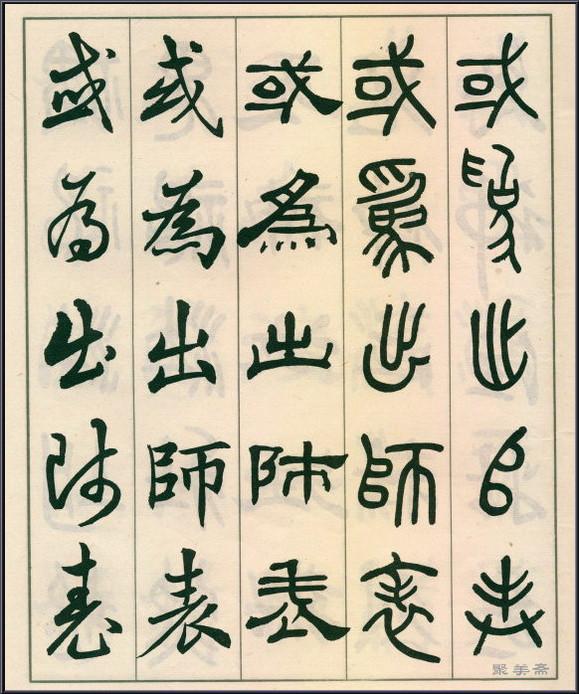 或為出師表
或為出師表
或為出師表
或為出師表
或為出師表
聚美斋